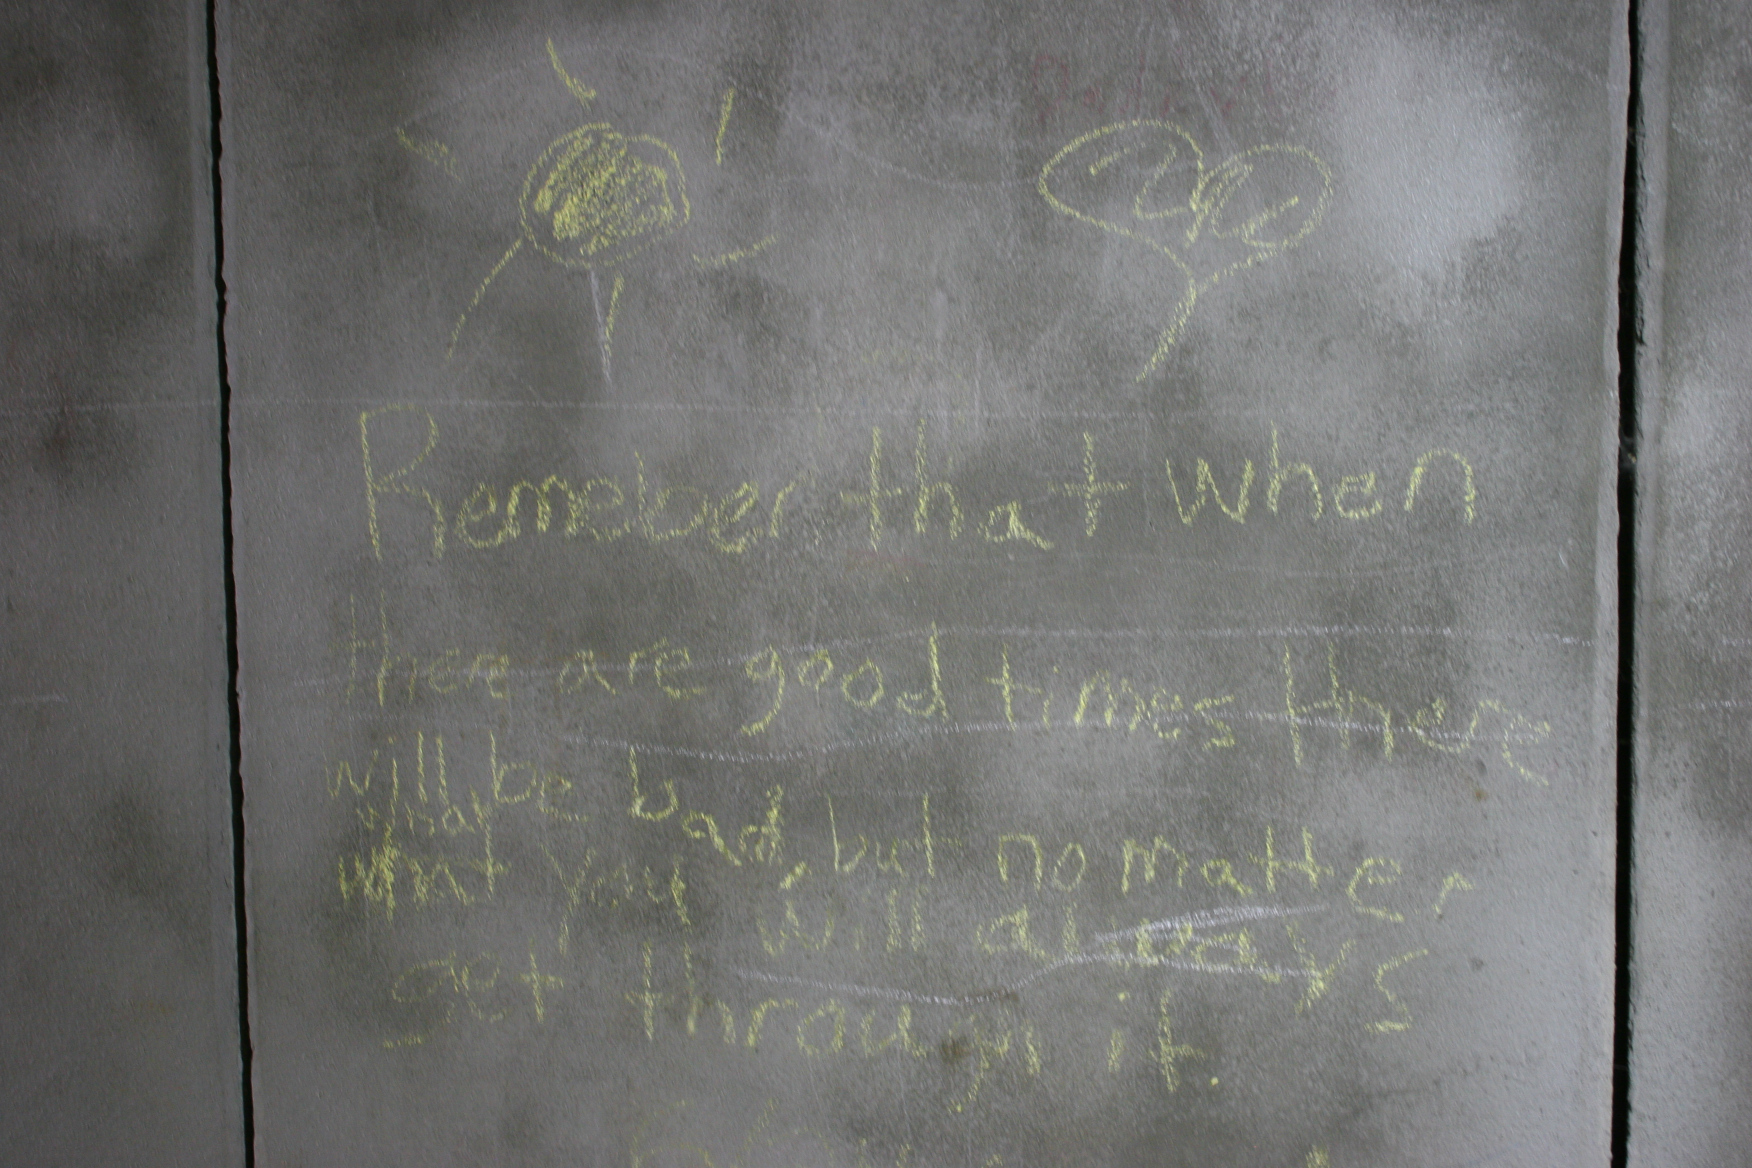 Remeber that when
there are good times there
will be bad, but no matter
what
what you will always
get through it.